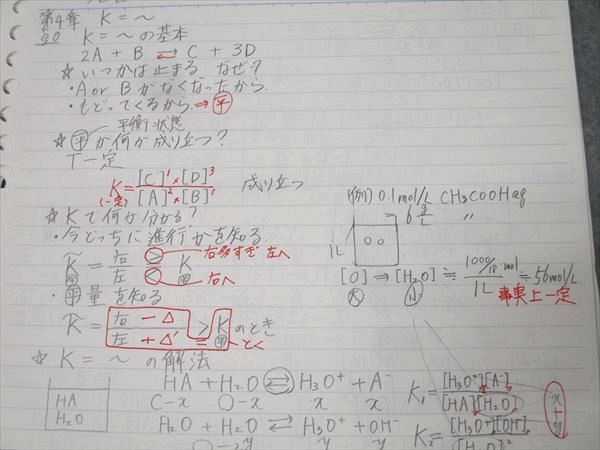 第4章 K = ～
§0 K = ～ の基本
2A + B ⇄ C + 3D
☆ いつかは止まる なぜ?
・A or B がなくなったから.
・もどってくるから. ⇒ 平
平衡状態
☆ 平 が何が成り立つ?
T一定
K = [C]¹×[D]³ / [A]²×[B]¹ 成り立つ
(一定)
☆ K で何が分かる?
・今どっちに進行かを知る
K = 右 / 左 > K 右多すぎ 左へ
< 右へ
平
・平量を知る
K = 右 -Δ / 左 +Δ' > K のとき
= 平 とく
(例) 0.1mol/L CH3COOHaq
6 g/L 〃
1L
[O] ⇒ [H2O] ≒ 1000/18 mol / 1L ≒ 56mol/L
事実上一定
☆ K = ～ の解法
HA
H2O
HA + H2O ⇄ H3O⁺ + A⁻
C-x ○-x x x
H2O + H2O ⇄ H3O⁺ + OH⁻
○-2y y y
K1 = [H3O⁺][A⁻] / [HA][H2O]
K2 = [H3O⁺][OH⁻] / [H2O]²
x+y